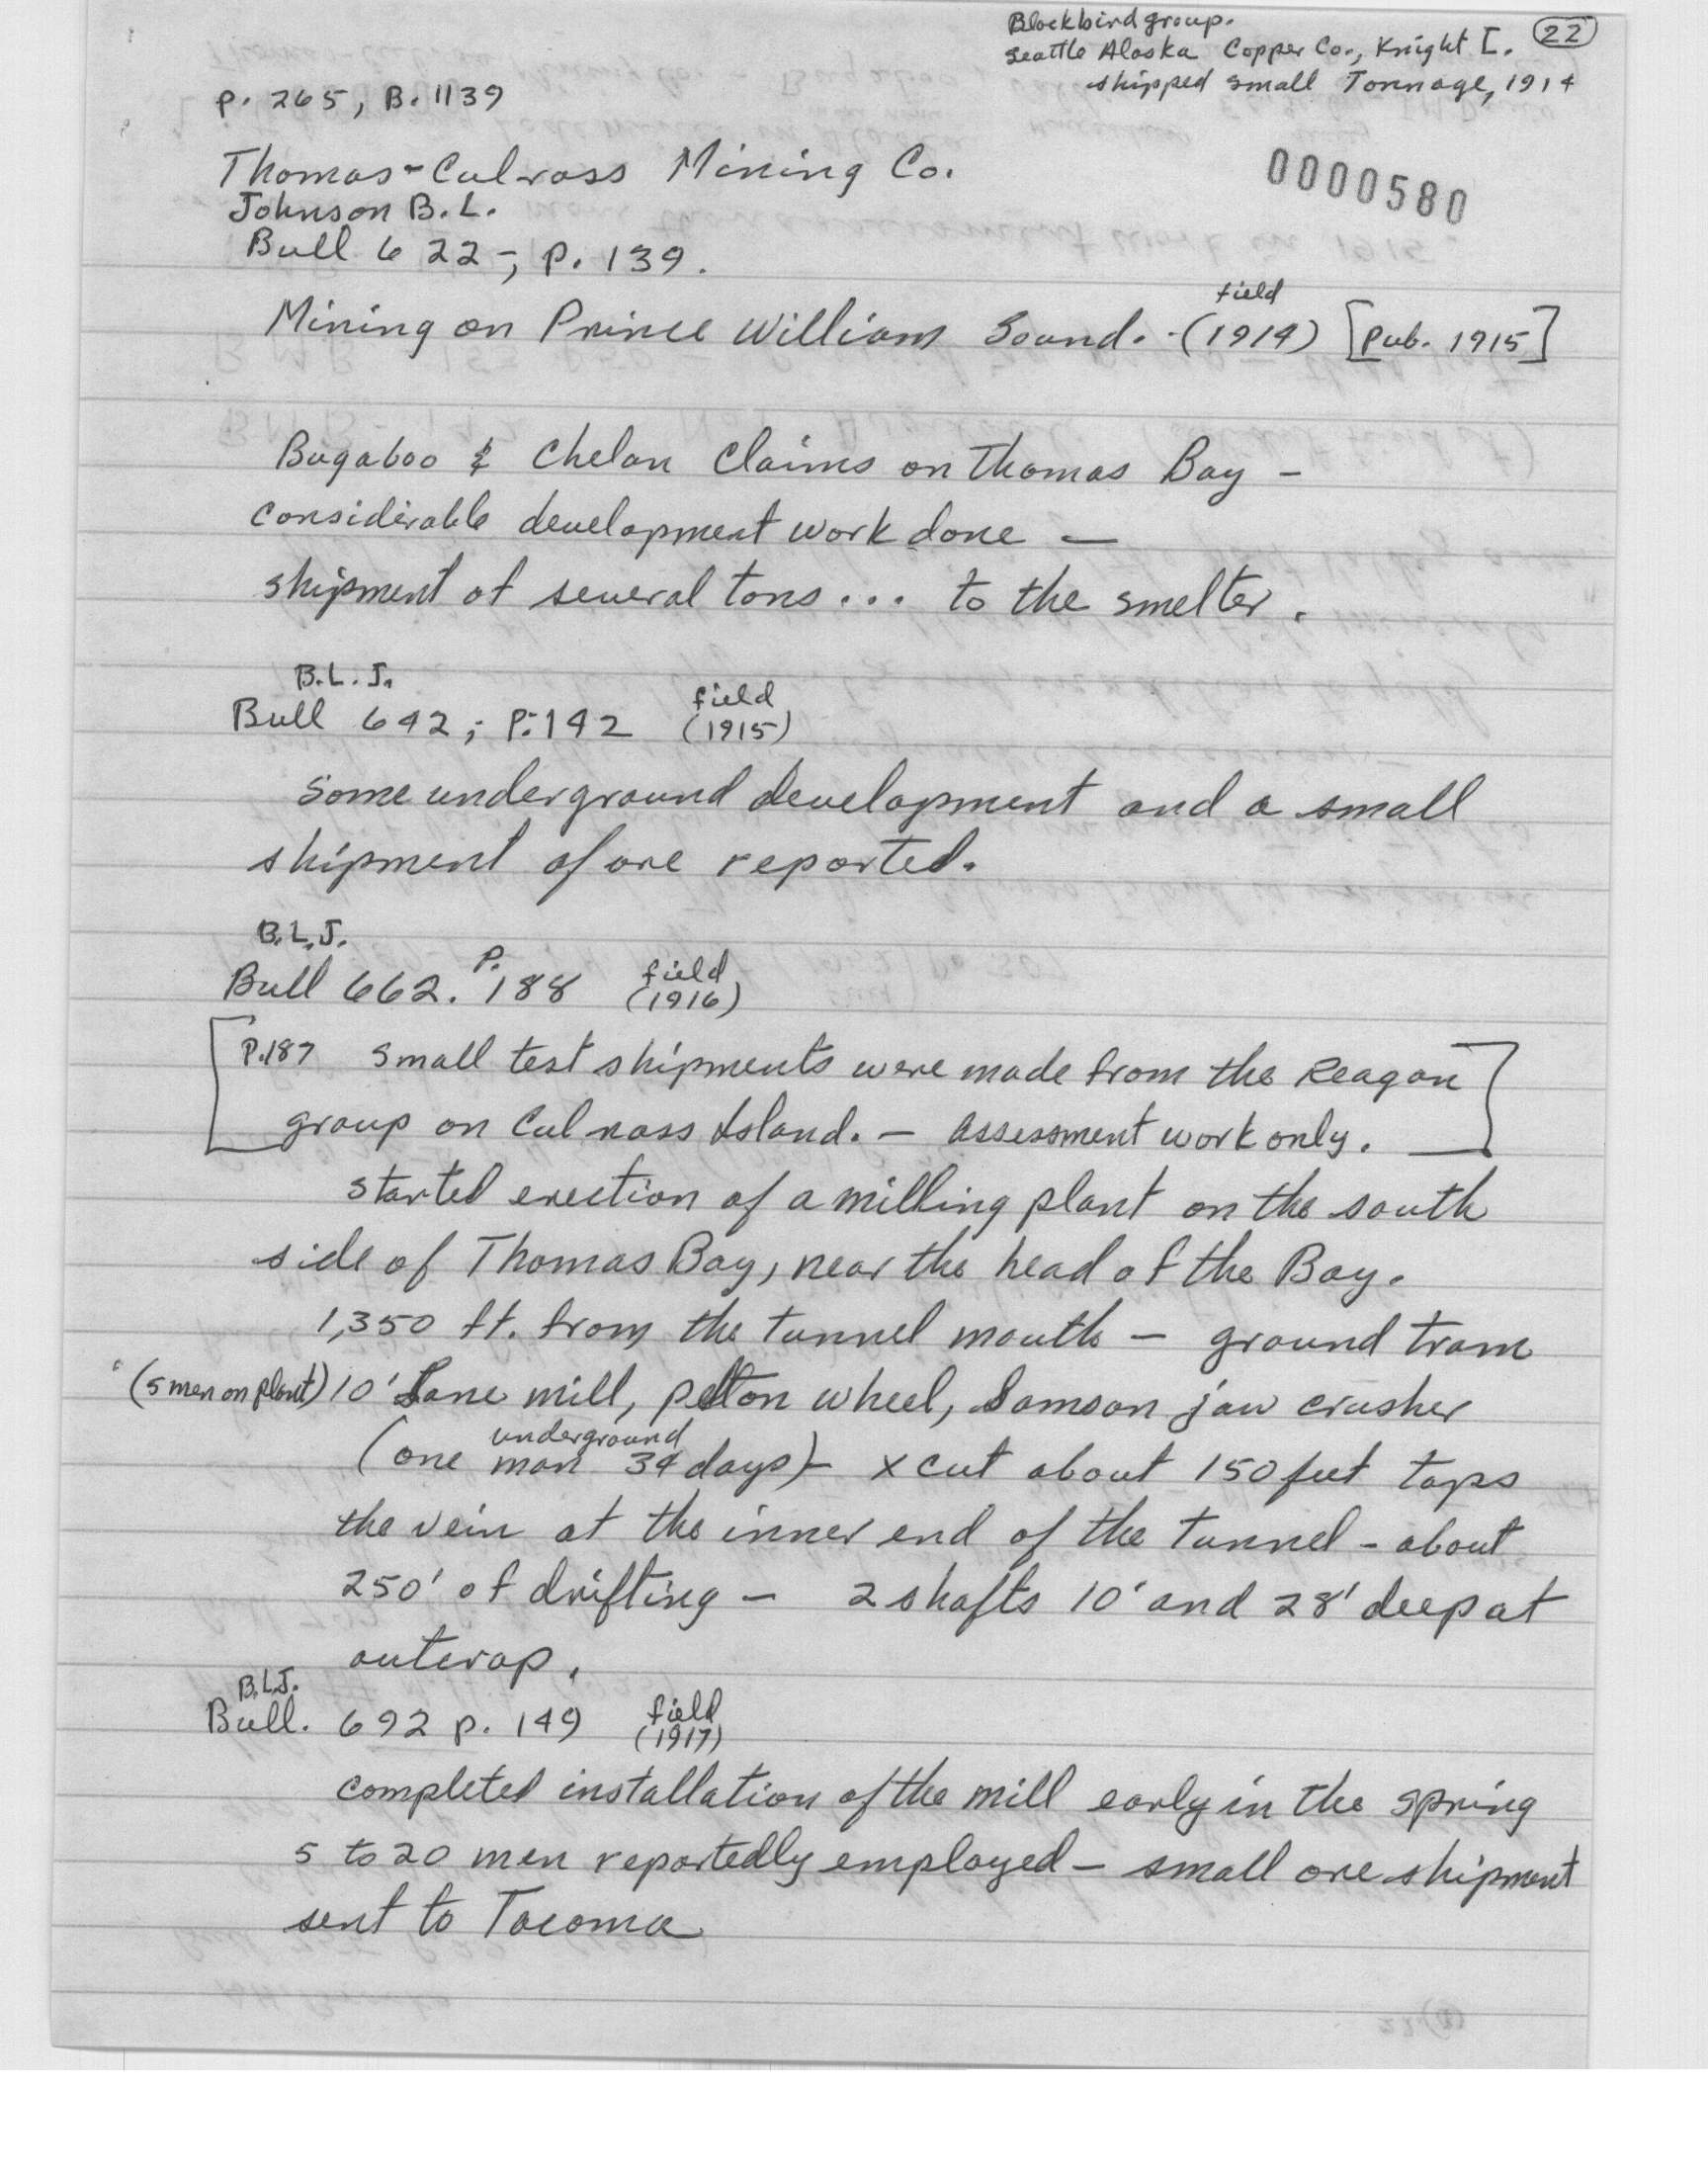 Blackbird group. 22
Seattle Alaska Copper Co., Knight I.
shipped small Tonnage, 1914
p. 265, B. 1139
0000580
Thomas-Culross Mining Co.
Johnson B.L.
Bull 622-, p. 139.
field
Mining on Prince William Sound. - (1914) [Pub. 1915]
Bugaboo & Chelan Claims on Thomas Bay -
considerable development work done —
shipment of several tons ... to the smelter.
B.L.J.
field
Bull 642; P. 142 (1915)
some underground development and a small
shipment of ore reported.
B.L.J.
Bull 662. P. 188 field (1916)
[P.187 small test shipments were made from the Reagan
group on Culross Island. - assessment work only.]
started erection of a milling plant on the south
side of Thomas Bay, near the head of the Bay.
1,350 ft. from the tunnel mouth - ground tram
(5 men on plant) 10' Lane mill, pelton wheel, Samson jaw crusher
underground
(one man 34 days) - xcut about 150 feet taps
the vein at the inner end of the tunnel - about
250' of drifting - 2 shafts 10' and 28' deep at
outcrop.
B.L.J.
Bull. 692 p. 149 field (1917)
completed installation of the mill early in the spring
5 to 20 men reportedly employed - small ore shipment
sent to Tacoma